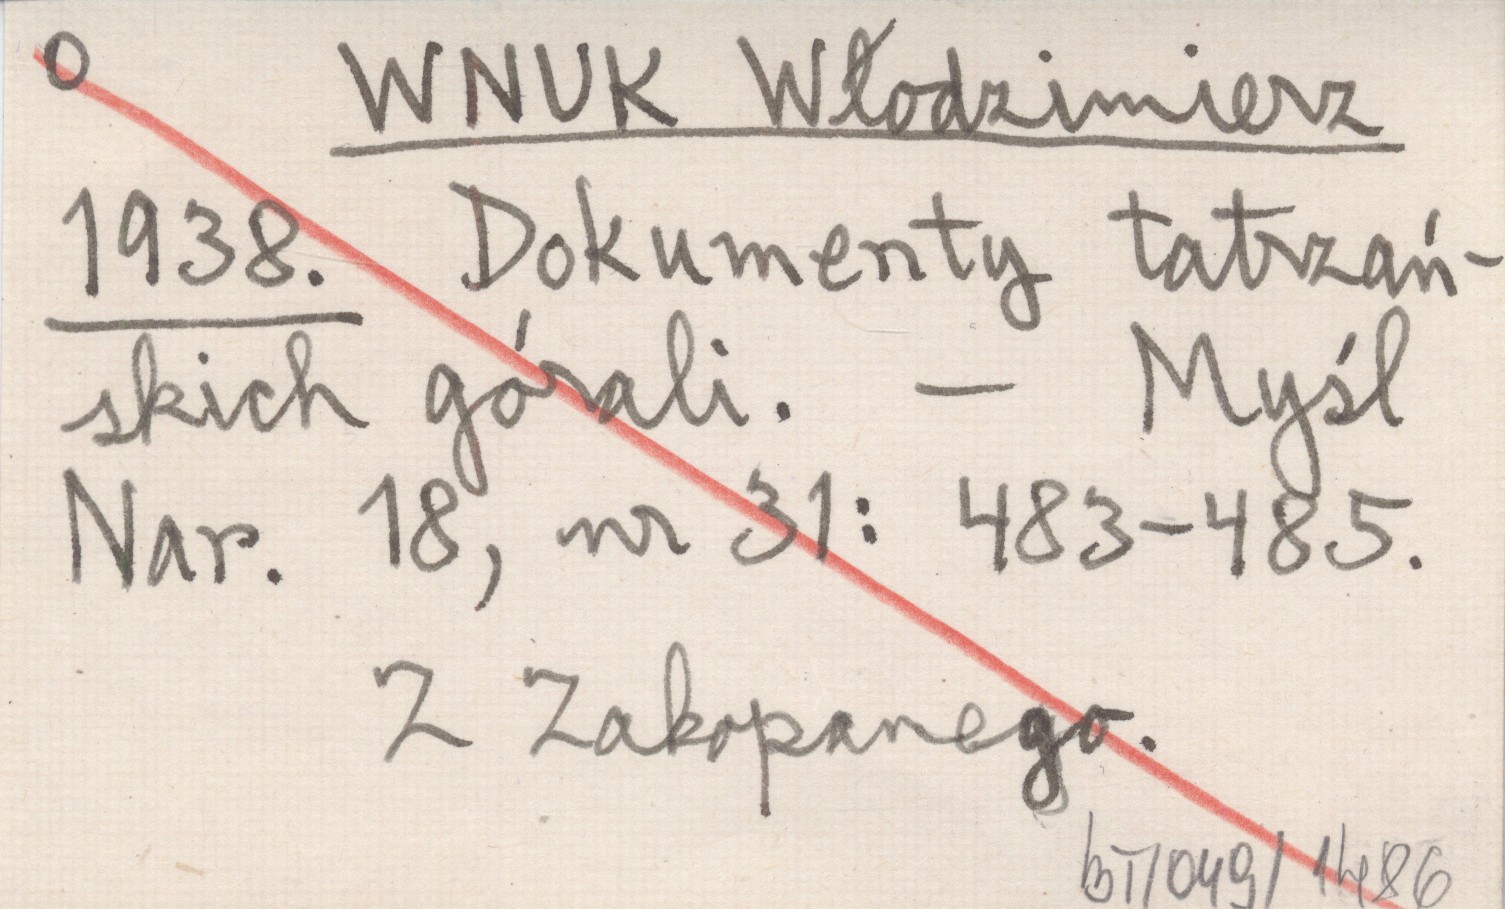 O WNUK Włodzimierz
1938. Dokumenty tatrzań-
skich górali. — Myśl
Nar. 18, nr 31: 483-485.
Z Zakopanego.
BT/049/1486